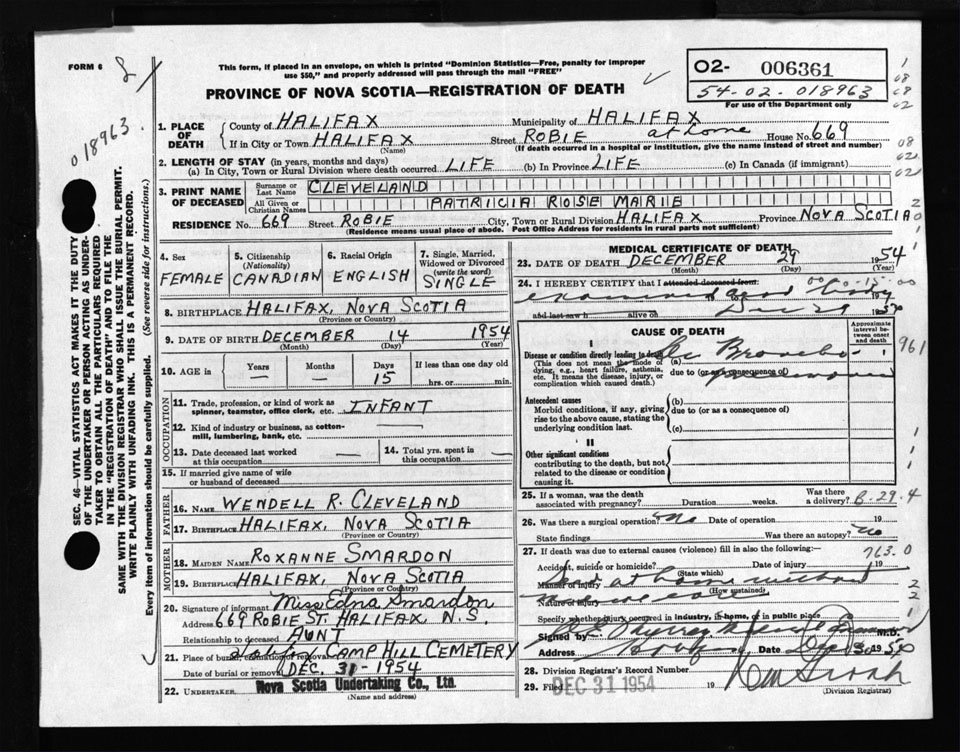 FORM 6
This form, if placed in an envelope, on which is printed "Dominion Statistics—Free, penalty for improper
use $50," and properly addressed will pass through the mail "FREE"
PROVINCE OF NOVA SCOTIA—REGISTRATION OF DEATH
O2- 006361
54-02-018963
For use of the Department only
018963.
1. PLACE OF DEATH
County of HALIFAX Municipality of HALIFAX
If in City or Town HALIFAX Street ROBIE at home House No. 669
(Name) (If death occurred in a hospital or institution, give the name instead of street and number)
2. LENGTH OF STAY (in years, months and days)
(a) In City, Town or Rural Division where death occurred LIFE (b) In Province LIFE (c) In Canada (if immigrant)
3. PRINT NAME OF DECEASED
Surname or Last Name CLEVELAND
All Given or Christian Names PATRICIA ROSE MARIE
RESIDENCE No. 669 Street ROBIE City, Town or Rural Division HALIFAX Province NOVA SCOTIA
(Residence means usual place of abode. Post Office Address for residents in rural parts not sufficient)
4. Sex FEMALE
5. Citizenship (Nationality) CANADIAN
6. Racial Origin ENGLISH
7. Single, Married, Widowed or Divorced (write the word) SINGLE
8. BIRTHPLACE HALIFAX, NOVA SCOTIA
(Province or Country)
9. DATE OF BIRTH DECEMBER 14 1954
(Month) (Day) (Year)
10. AGE in Years — Months — Days 15 If less than one day old
hrs. or min.
OCCUPATION
11. Trade, profession, or kind of work as
spinner, teamster, office clerk, etc. INFANT
12. Kind of industry or business, as cotton-
mill, lumbering, bank, etc. —
13. Date deceased last worked
at this occupation —
14. Total yrs. spent in
this occupation —
15. If married give name of wife
or husband of deceased
FATHER
16. Name WENDELL R. CLEVELAND
17. Birthplace HALIFAX, NOVA SCOTIA
(Province or Country)
MOTHER
18. MAIDEN NAME ROXANNE SMARDON
19. BIRTHPLACE HALIFAX, NOVA SCOTIA
(Province or Country)
20. Signature of informant Miss Edna Smardon
Address 669 ROBIE ST. HALIFAX, N.S.
Relationship to deceased AUNT
21. Place of burial, cremation or removal CAMP HILL CEMETERY
Date of burial or removal DEC. 31-1954
22. UNDERTAKER Nova Scotia Undertaking Co., Ltd.
(Name and address)
MEDICAL CERTIFICATE OF DEATH
23. DATE OF DEATH DECEMBER 29 1954
(Month) (Day) (Year)
24. I HEREBY CERTIFY that I attended deceased from:
and last saw h alive on Dec 29
CAUSE OF DEATH
Approximate interval between onset and death
I
Disease or condition directly leading to death
(This does not mean the mode of
dying, e.g., heart failure, asthenia,
etc. It means the disease, injury, or
complication which caused death.)
(a) Broncho
due to (or as a consequence of) pneumonia
Antecedent causes
Morbid conditions, if any, giving
rise to the above cause, stating the
underlying condition last.
(b)
due to (or as a consequence of)
(c)
II
Other significant conditions
contributing to the death, but not
related to the disease or condition
causing it.
961
25. If a woman, was the death
associated with pregnancy? Duration weeks. Was there
a delivery? B-29.4
26. Was there a surgical operation? No Date of operation 19
State findings Was there an autopsy? No
27. If death was due to external causes (violence) fill in also the following:—
763.0
Accident, suicide or homicide? Date of injury 19
(State which)
Manner of injury at home without
(How sustained)
Nature of injury
Specify whether injury occurred in industry, in home, or in public place
Signed by M.D.
Address Date Dec 30 19
28. Division Registrar's Record Number
29. Filed DEC 31 1954 19
(Division Registrar)
SEC. 46—VITAL STATISTICS ACT MAKES IT THE DUTY
OF THE UNDERTAKER OR PERSON ACTING AS UNDER-
TAKER TO OBTAIN ALL THE PARTICULARS REQUIRED
IN THE "REGISTRATION OF DEATH" AND TO FILE THE
SAME WITH THE DIVISION REGISTRAR WHO SHALL ISSUE THE BURIAL PERMIT.
WRITE PLAINLY WITH UNFADING INK. THIS IS A PERMANENT RECORD.
Every item of information should be carefully supplied. (See reverse side for instructions.)